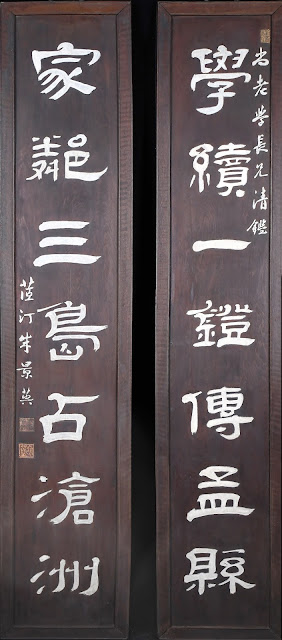 尚老學長兄清鑑
學續一鐙傳孟縣
家鄰三島石滄洲
茝汀朱景英